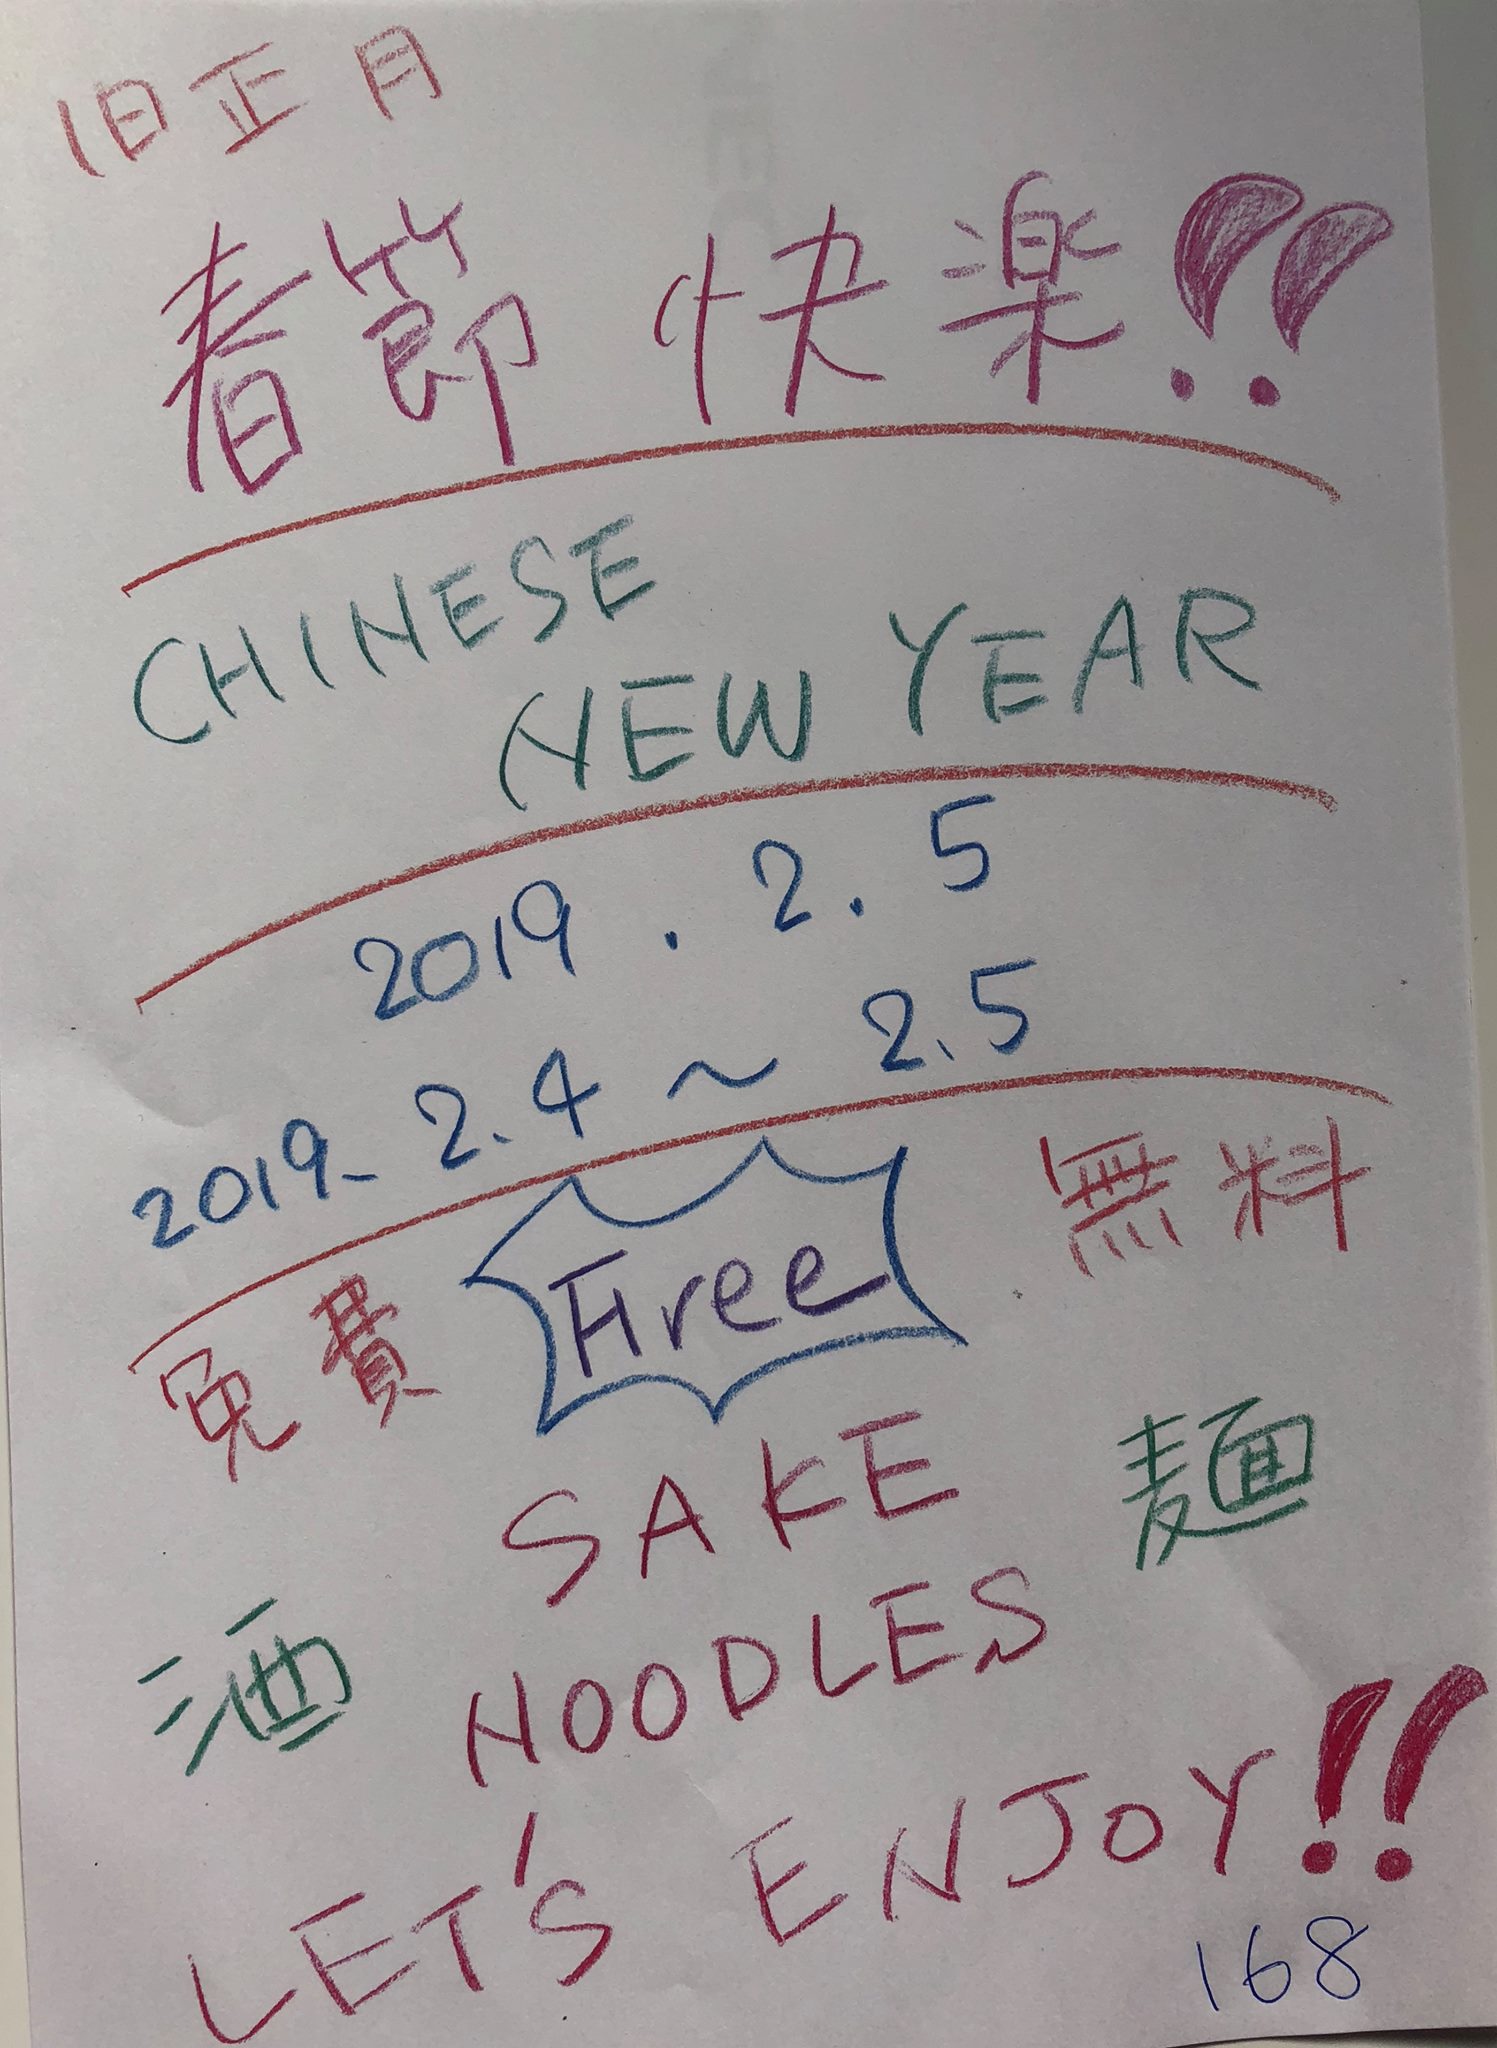 旧正月
春節 快楽!!
CHINESE
NEW YEAR
2019.2.5
2019.2.4～2.5
免費 Free 無料
SAKE 麺
酒 NOODLES
LET'S ENJOY!!
168